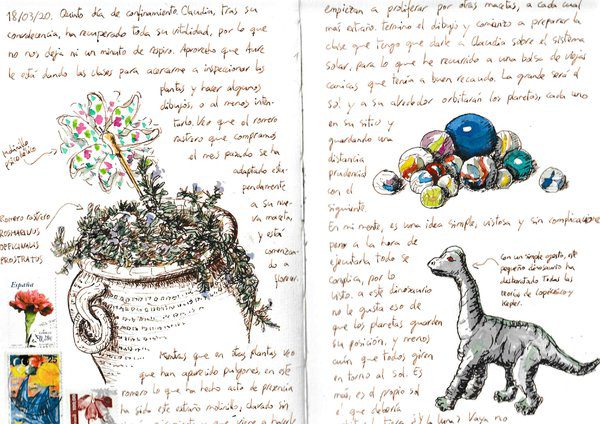 18/03/20. Quinto día de confinamiento. Claudia, tras su
convalecencia, ha recuperado toda su vitalidad, por lo que
no nos deja ni un minuto de respiro. Aprovecho que Aure
le está dando las clases para acercarme a inspeccionar las
plantas y hacer algunos
dibujos, o al menos inten-
tarlo. Veo que el romero
rastrero que compramos
el mes pasado se ha
adaptado estu-
pendamente
a su nue-
va maceta,
y está
comenzan-
do a
florear.
Molinillo
psicodélico
Romero rastrero
ROSMARINUS
OFFICINALIS
PROSTRATUS
España
Mientras que en otras plantas veo
que han aparecido pulgones, en este
romero lo que ha hecho acto de presencia
ha sido este extraño molinillo, clavado sin
empiezan a proliferar por otras macetas, a cada cual
más extraño. Termino el dibujo y comienzo a preparar la
clase que tengo que darle a Claudia sobre el sistema
solar, para lo que he recurrido a una bolsa de viejas
canicas que tenía a buen recaudo. La grande será el
sol y a su alrededor orbitarán los planetas, cada uno
en su sitio y
guardando una
distancia
prudencial
con el
siguiente.
En mi mente, es una idea simple, vistosa y sin complicaciones
pero a la hora de
ejecutarla todo se
complica, por lo
visto a este dinosaurio
no le gusta eso de
que los planetas guarden
su posición, y menos
aún que todos giren
en torno al sol. Es
más, es el propio sol
el que debería
Con un simple gesto, este
pequeño dinosaurio ha
desbaratado todas las
teorías de Copérnico y
Kepler.
¿Y la luna? Vaya no